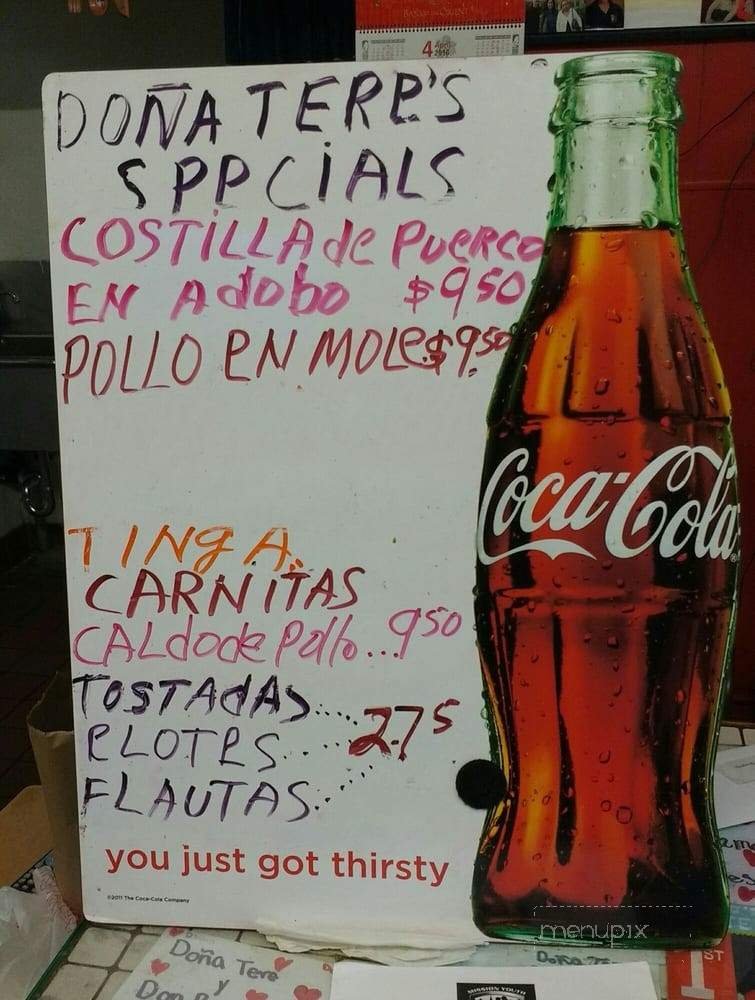 4 April
2016
DOÑA TERE'S
SPECIALS
COSTILLA de PUERCO
EN Adobo $9.50
POLLO EN MOLE $9.50
TINGA.
CARNITAS
CALdo de Pollo...9.50
TOSTADAS...
ELOTES... 2.75
FLAUTAS...
Coca-Cola
you just got thirsty
©2011 The Coca-Cola Company
menupix
Doña Tere
y
Don
MISSION YOUTH
ST